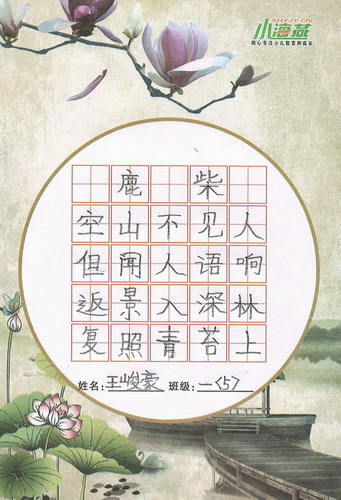 XHYJY.CN
小海燕
用心专注少儿教育和成长
鹿柴
空山不见人
但闻人语响
返景入深林
复照青苔上
姓名:王峻豪 班级:一〈5〉